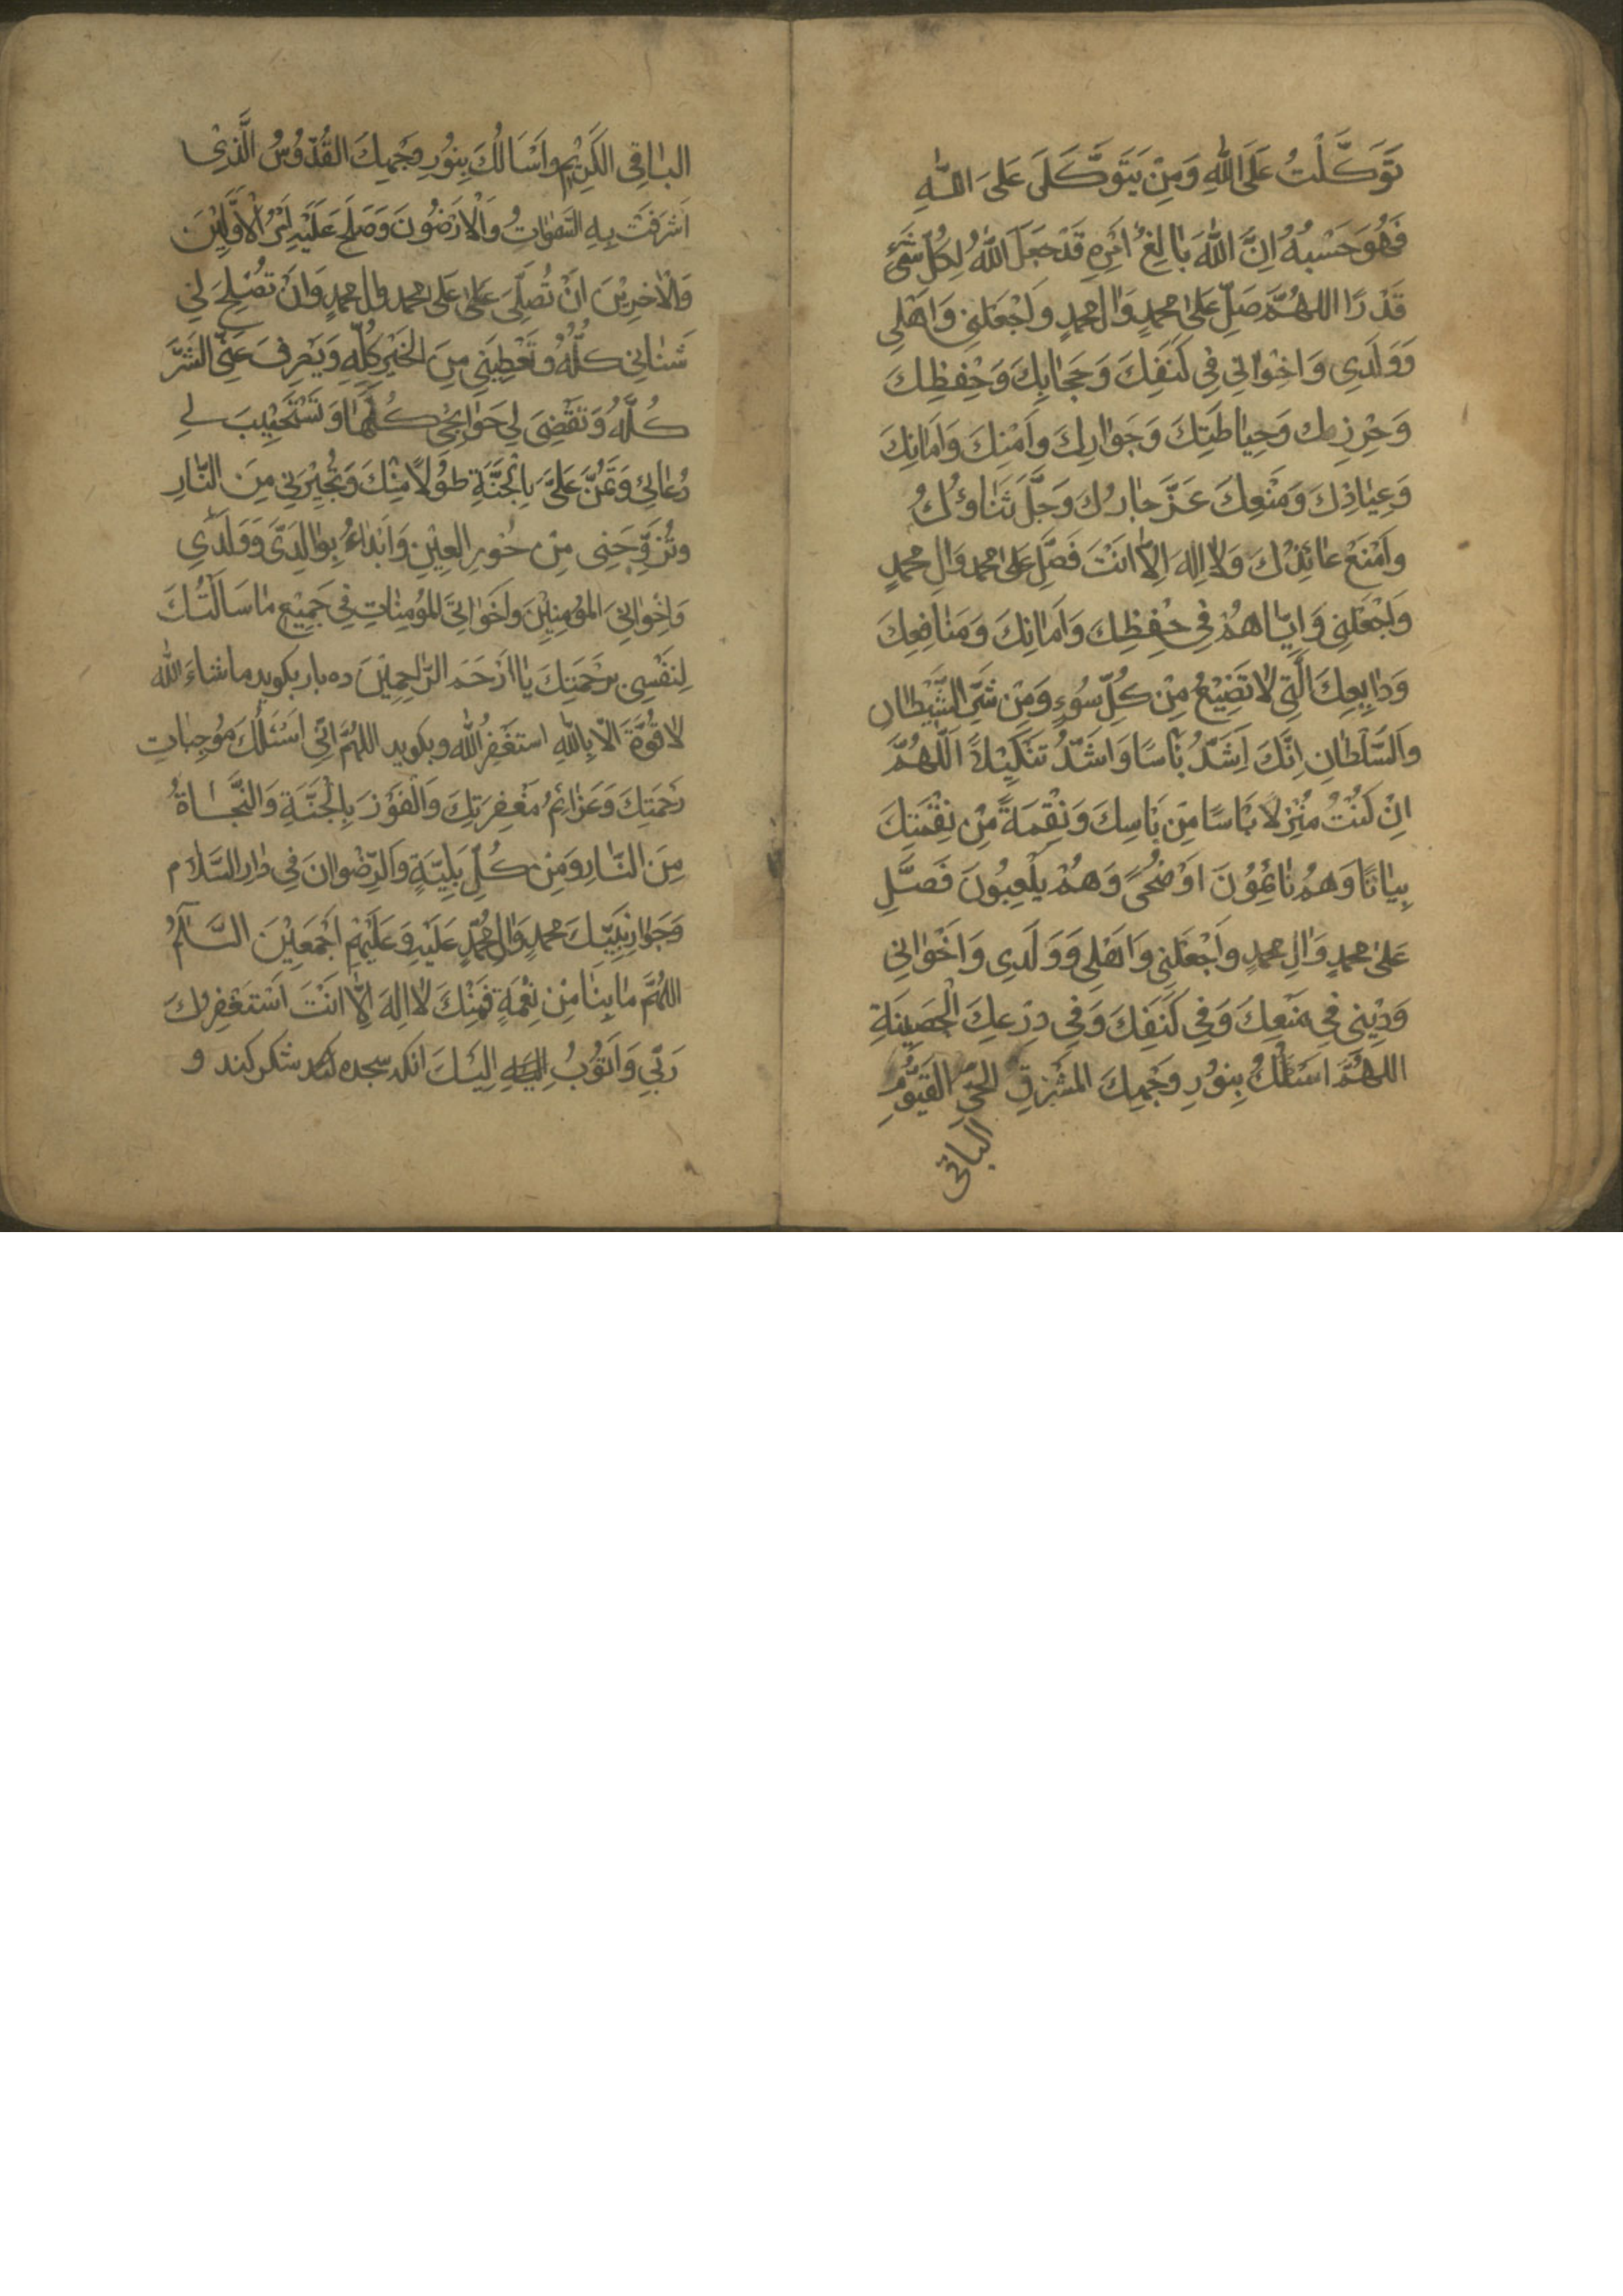 تَوَكَّلْتُ عَلَى اللّٰهِ وَمِنْ يَتَوَكَّلَى عَلَى اللّٰهِ
فَهُوَ حَسْبُهُ اِنَّ اللّٰهَ بٰالِغُ اَمْرِهِ قَدْ جَعَلَ اللّٰهُ لِكُلِّ شَىْءٍ
قَدْرًا اللهُمَّ صَلِّ عَلىٰ محمدٍ وَاٰلِ محمدٍ وَاجْعَلنِى وَاَهْلِى
وَوَلَدِى وَاخْوٰاتى فِى كَنَفِكَ وَحِجٰابِكَ وَحِفظِكَ
وَحْرِزِكَ وَحِيٰاطَتِكَ وَجَوٰارِكَ وَاَمْنِكَ وَاَمٰانِكَ
وَعِيٰاذِكَ وَمَنْعِكَ عَزَّ جٰارُكَ وَجَلَّ ثَنٰاوُكَ
وَامْنَعْ عٰائِذُكَ وَلاٰ اِلٰهَ اِلاّٰ انَتَ فَصَّلِ عَلىٰ محمد وَاٰلِ محمدٍ
وَاجْعَلنِى وَاِيّٰاهُمْ فِى حْفِظِكَ وَاَمٰانِكَ وَمَنٰافِعِكَ
وَدٰايِعِكَ الَّتِى لاٰ تَضِيْعُ مِنْ كُلِّ سُوْءٍ وَمِنْ شَّرِ الشَّيْطٰانِ
وَالسَّلطٰانِ اِنَّكَ اَشَدُّ بَأسًا وَاشَدُّ تَنكِيْلاً اَللّٰهُمَّ
اِنْ كُنْتُ مُنْزِلاً بَأسًا مِنَ بَأسِكَ وَنِقْمَةً مِنْ نِقْمَتِكَ
بِيٰاتًا وَهُمْ نٰائِمُوْنَ اوْضُحىً وَهُمْ يلْعبُونَ فَصَّلِ
عَلىٰ محمدٍ وَاٰلِ محمدٍ وَاجْعَلنِى وَاهْلِى وَوَلَدِى وَاخْوٰانى
وَدِيْنِى فِى مَنْعِكَ وَفِى كَنَفِكَ وَفِى دِرْعِكَ الْحَصِيْنَةِ
اللهُمَّ اسَئَلُكَ بِنوُرِ وَجْهِكَ المشْرِقِ الحَىِّ القَيُّوْمِ
الباقى
البٰاقِى الكَرِيْمِ وَاَسْأَلُكَ بِنوُرِ وَجْهِكَ القُدّوُسُ الَّذِىْ
اَشرَقَتْ بِهِ السَّمٰوٰاتُ وَاْلاَرَضُونَ وَصَلَحَ عَلَيْهِ اَمْرُ اْلاَوَّلِيْنَ
وَاْلاٰخِرِيْنَ اَنْ تُصَلِّىَ عَلىٰ عَلىٰ محمد واٰل محمدٍ وَاَنْ تُصْلِحَ لِى
شَئانى كُلَّهُ وَتُعْطِيَنِى مِنَ الخَيْرِ كُلِّهِ وَيَصْرِفَ عَنِّى الشَّرَّ
كُلَّهُ وَتَقْضِىَ لِى حَوٰايِجْى كُلَّهٰا وَتَسْتَجْيِبَ لِى
دُعٰائى وَتَمُنَّ عَلَىَّ بِالْجَنَّةِ طَوْلاً مِنْكَ وَتُجْيْرَنى مِنَ النّٰارِ
وتُزَوِّجَنِى مِنْ حُورِ العِيْنِ وَابْدٰاءُ بِوٰالِدَىَّ وَوَلَدِى
وَاِخْوٰانِى المؤمِنِيْنَ وَاخَوٰاتِىَ المؤمِنٰاتِ فِى جَمِيْعِ مٰا سَالَتُكَ
لِنَفْسِى بِرَحْمَتِكَ يٰا اَرْحَمَ الرّٰاحِمِيْنَ ده بار بكويد ماشٰاءَ اللّٰه
لاٰ قُوَّةَ الاّٰ بِاللّٰهِ استَغْفِرُ اللّٰه و بكويد اللهُمَّ اِنّىِ اَسْئَلُكَ مُوْجِبٰاتِ
رَحْمَتِكَ وَعَزٰائِمُ مَغْفِرَتِكَ وَالْفَوْزَ بِالْجَنَّةِ وَالنَّجٰاةُ
مِنَ النّٰارِ وَمِنْ كُلِّ بَلِيَّةٍ وَالرِّضْوٰانَ فِى دٰارِ السَّلاٰم
وَجَوٰارِ نَبِيِّكَ محمدٍ وَاٰلِ مُحُمّدٍ عَلَيْهِ وَعَلَيْهِمْ اَجْمَعِيْنَ السَّلاٰمُ
اللهُمَّ مٰا بِنٰا مِنْ نِعْمَةٍ فَمِنْكَ لاٰ اِلهَ اِلاّٰ انَتَ اَسْتَغْفِرُكَ
رَبّىِ وَاَتوُبُ اِلَيْكَ انكه سجده كند شكر كند و